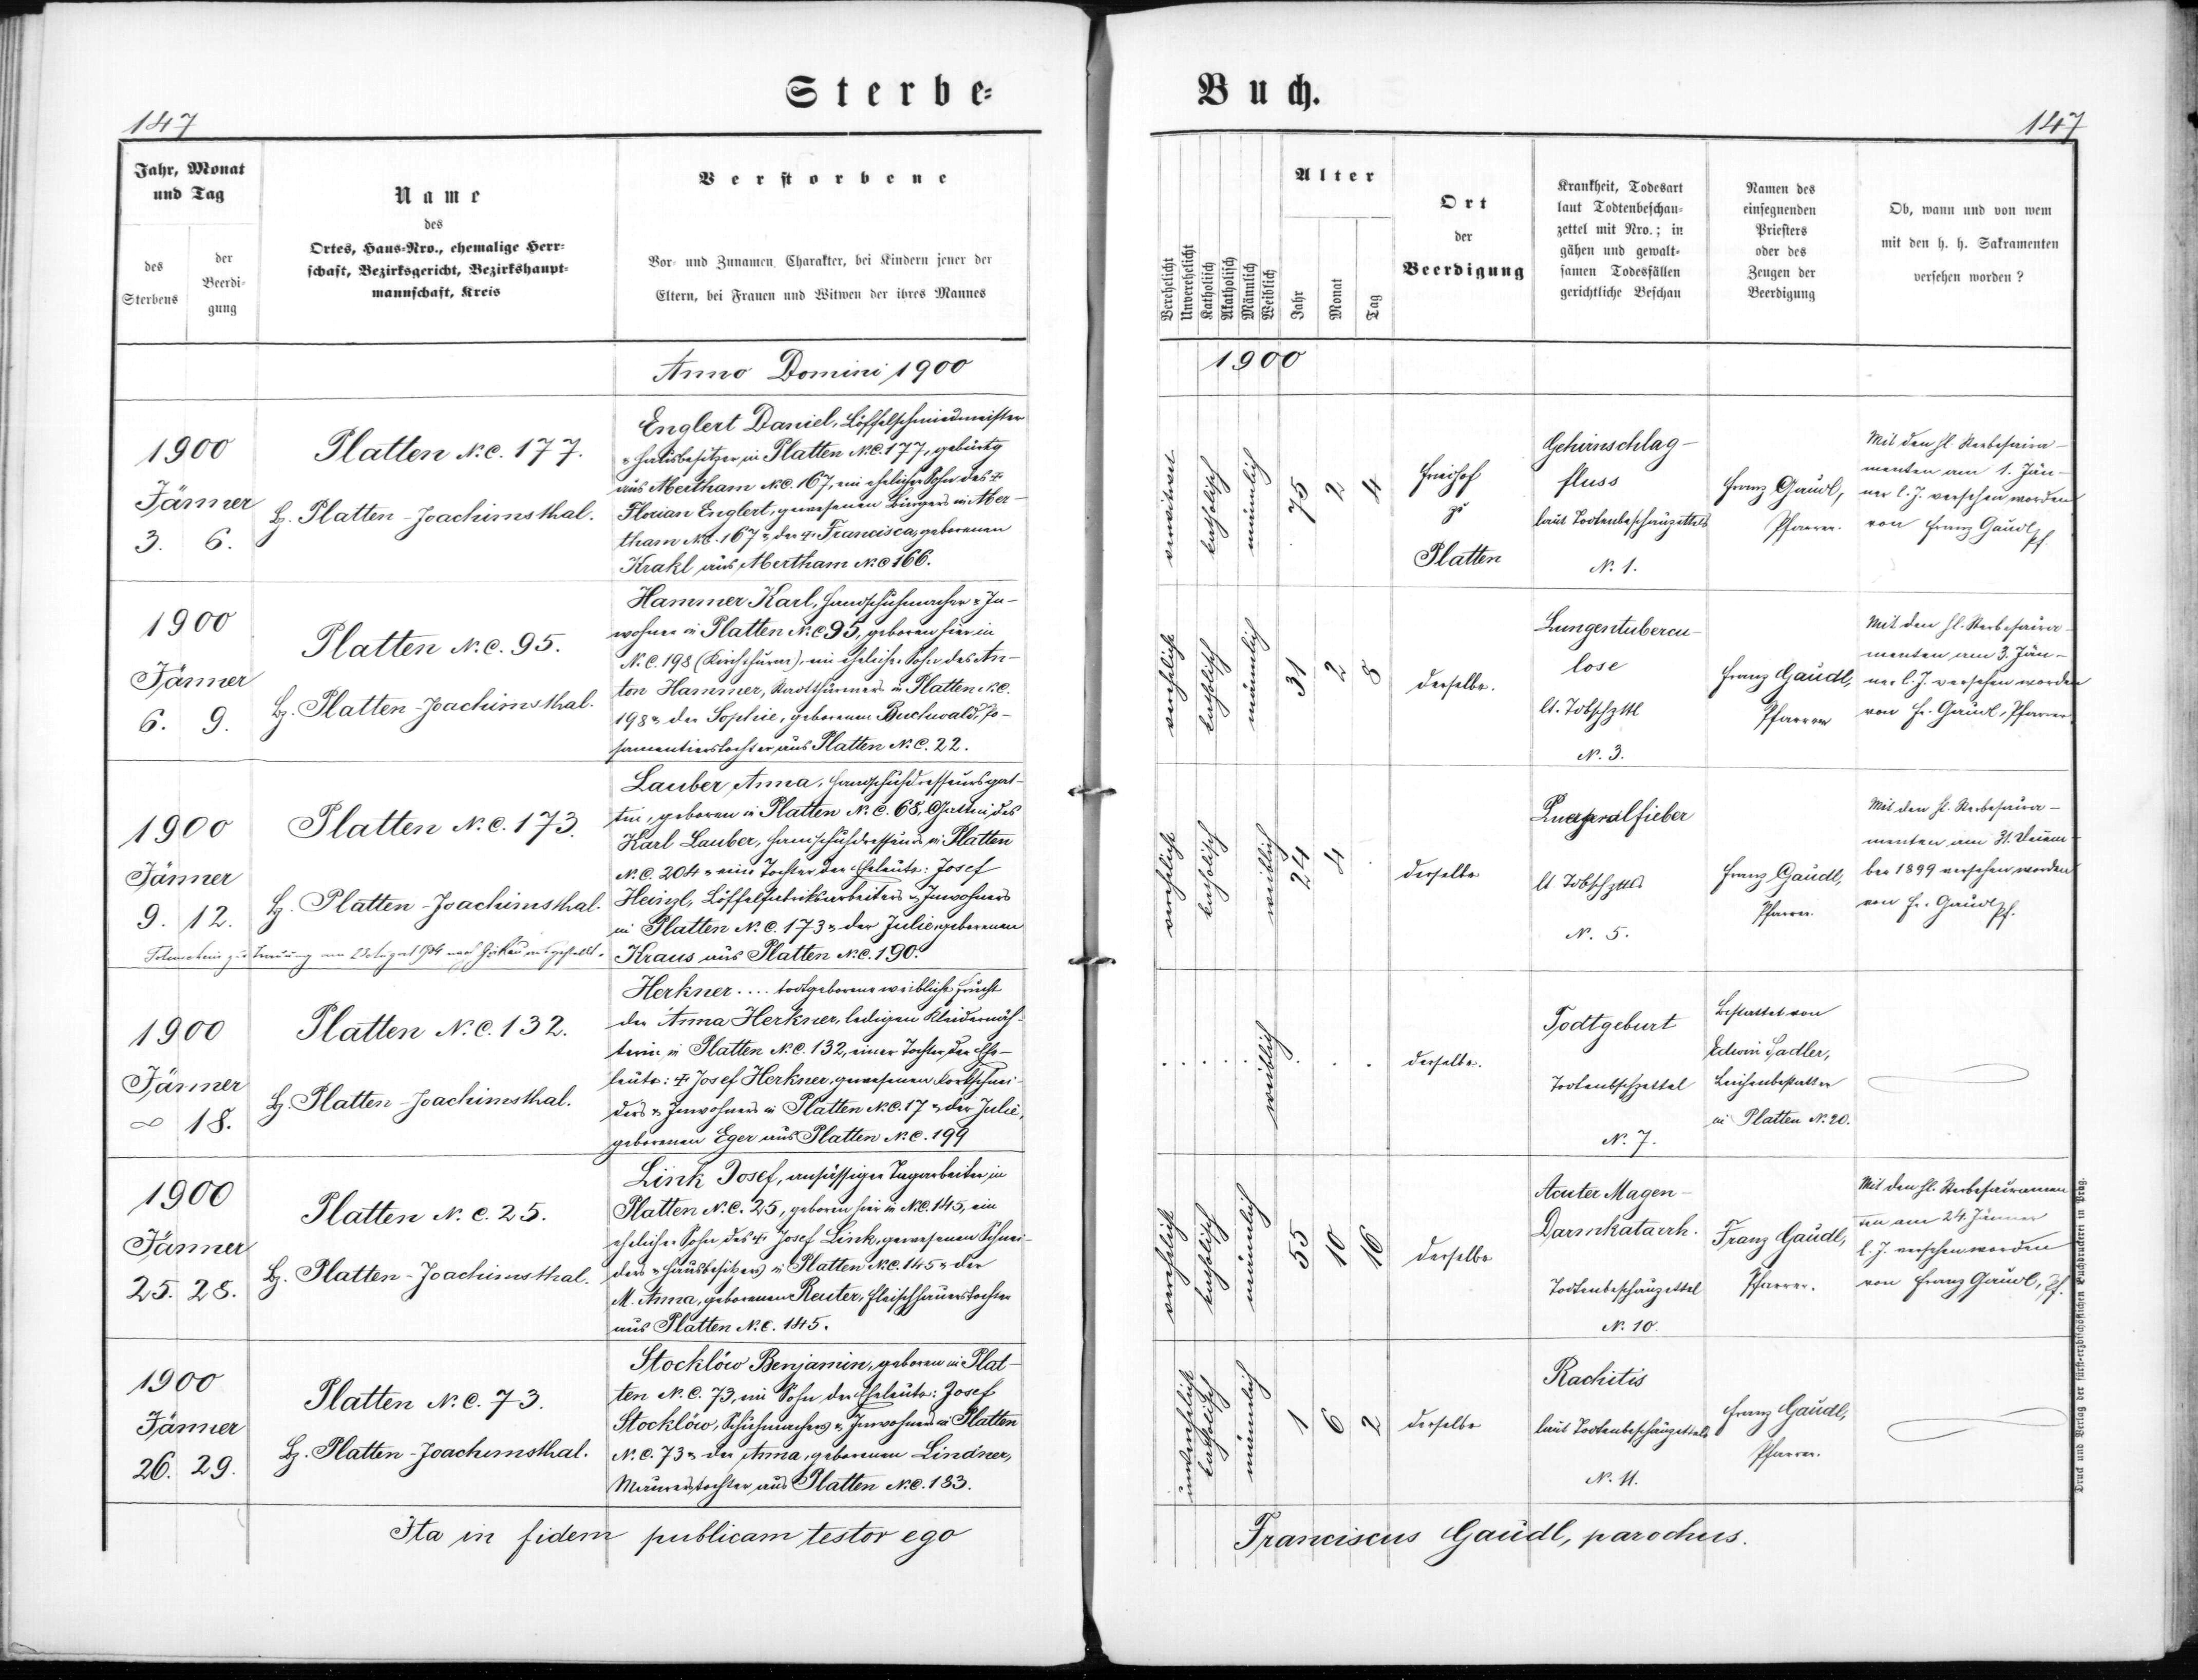 Sterbe-
Buch.
147
147
Jahr, Monat
und Tag
des
Sterbens
der
Beerdi-
gung
Name
des
Ortes, Haus-Nro., ehemalige Herr-
schaft, Bezirksgericht, Bezirkshaupt-
mannschaft, Kreis
Verstorbene
Vor- und Zunamen, Charakter, bei Kindern jener der
Eltern, bei Frauen und Witwen der ihres Mannes
Verehelicht
Unverehelicht
Katholisch
Akatholisch
Männlich
Weiblich
Alter
Jahr
Monat
Tag
Ort
der
Beerdigung
Krankheit, Todesart
laut Todtenbeschau-
zettel mit Nro.; in
gähen und gewalt-
samen Todesfällen
gerichtliche Beschau
Namen des
einsegnenden
Priesters
oder des
Zeugen der
Beerdigung
Ob, wann und von wem
mit den h. h. Sakramenten
versehen worden?
Anno Domini 1900
1900
1900
Jänner
3. 6.
Platten N.C. 177.
Bz. Platten-Joachimsthal.
Englert Daniel, Löffelschmiedmeister
& Hausbesitzer in Platten N.C. 177, gebürtig
aus Abertham N.C. 167, ein ehelicher Sohn des †
Florian Englert, gewesenen Bürgers in Aber-
tham N.C. 167 & der † Francisca, geborenen
Krakl aus Abertham N.C. 166.
verwitwet
katholisch
männlich
75
2
4
Friedhof
zu
Platten
Gehirnschlag-
fluss
laut Todtenbeschauzettels
N. 1.
Franz Gaudl,
Pfarrer.
Mit den hl. Sterbesacra-
menten am 1. Jän-
ner l. J. versehen worden
von Franz Gaudl, Pf.
1900
Jänner
6. 9.
Platten N.C. 95.
Bz. Platten-Joachimsthal.
Hammer Karl, Handschuhmacher & In-
wohner in Platten N.C. 95, geboren hier in
N.C. 198 (Kirchthurm), ein ehelicher Sohn des An-
ton Hammer, Stadtthürmers in Platten N.C.
198 & der Sophie, geborenen Buchwald, Po-
samentierstochter aus Platten N.C. 22.
verehelicht
katholisch
männlich
31
2
8
derselbe.
Lungentubercu-
lose
lt. Tdbschzttl
N. 3.
Franz Gaudl,
Pfarrer
Mit den hl. Sterbesacra-
menten am 3. Jän-
ner l. J. versehen worden
von Fr. Gaudl, Pfarrer
1900
Jänner
9. 12.
Platten N.C. 173.
Bz. Platten-Joachimsthal.
Lauber Anna, Handschuhdresseursgat-
tin, geboren in Platten N.C. 68, Gattin des
Karl Lauber, Handschuhdresseurs in Platten
N.C. 204 & eine Tochter der Eheleute: Josef
Heinzl, Löffelfabriksarbeiters & Inwohners
in Platten N.C. 173 & der Julie, geborenen
Kraus aus Platten N.C. 190.
Totenschein zur Trauung am 23. August 1904 nach ausgestellt.
verehelicht
katholisch
weiblich
24
4
.
derselbe
Puerperalfieber
lt. Tdbschzttls
N. 5.
Franz Gaudl,
Pfarrer.
Mit den hl. Sterbesacra-
menten am 31. Decem-
ber 1899 versehen worden
von Fr. Gaudl, Pf.
1900
Jänner
∞ 18.
Platten N.C. 132.
Bz. Platten-Joachimsthal.
Herkner .... todtgeborene weibliche Frucht
der Anna Herkner, ledigen Kleidernäh-
terin in Platten N.C. 132, einer Tochter der Ehe-
leute: † Josef Herkner, gewesenen
& Inwohners in Platten N.C. 17 & der Julie,
geborenen Eger aus Platten N.C. 199
weiblich
derselbe.
Todtgeburt
Todtenbschzettel
N. 7.
Bestattet von
Edwin Sadler,
Leichenbestatter
in Platten N. 20.
1900
Jänner
25. 28.
Platten N.C. 25.
Bz. Platten-Joachimsthal.
Link Josef, ansässiger Tagarbeiter in
Platten N.C. 25, geboren hier in N.C. 145, ein
ehelicher Sohn des † Josef Link, gewesenen Schnei-
ders & Hausbesitzers in Platten N.C. 145 & der
M. Anna, geborenen Reuter, Fleischhauerstochter
aus Platten N.C. 145.
verehelicht
katholisch
männlich
55
10
16
derselbe
Acuter Magen-
Darmkatarrh.
Todtenbeschauzettel
N. 10.
Franz Gaudl,
Pfarrer.
Mit den hl. Sterbesacramen-
ten am 24. Jänner
l. J. versehen worden
von Franz Gaudl, Pf.
1900
Jänner
26. 29.
Platten N.C. 73.
Bz. Platten-Joachimsthal.
Stocklöw Benjamin, geboren in Plat-
ten N.C. 73, ein Sohn der Eheleute: Josef
Stocklöw, Schuhmachers & Inwohners in Platten
N.C. 73 & der Anna, geborenen Lindner,
Maurerstochter aus Platten N.C. 183.
unverehelicht
katholisch
männlich
1
6
2
derselbe
Rachitis
laut Todtenbeschauzettels
N. 11.
Franz Gaudl,
Pfarrer.
Ita in fidem publicam testor ego
Franciscus Gaudl, parochus.
Druck und Verlag der fürst-erzbischöflichen Buchdruckerei in Prag.